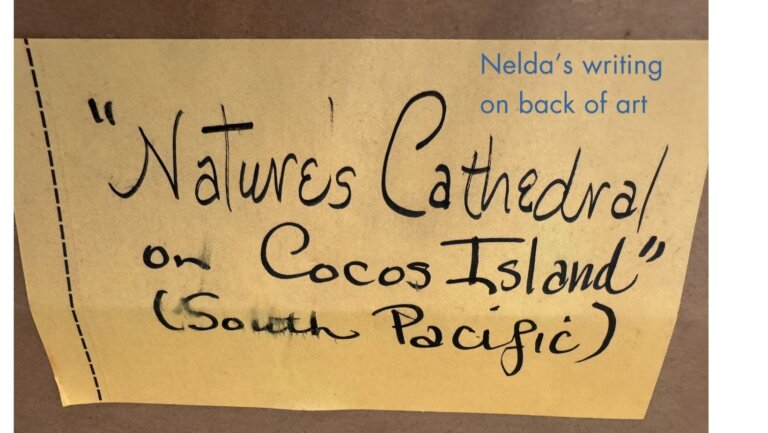 Nelda's writing
on back of art
"Nature's Cathedral
on Cocos Island"
(South Pacific)